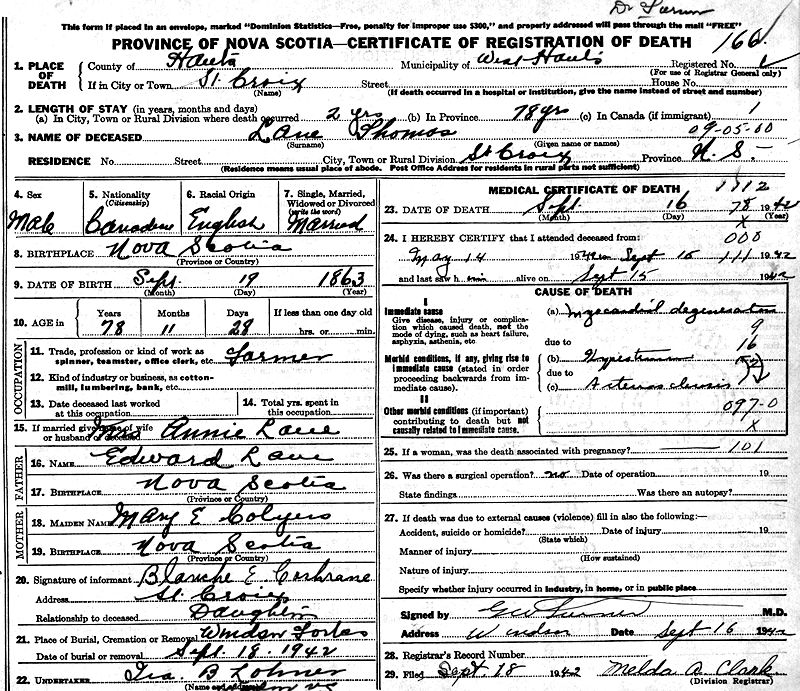 Dr
This form if placed in an envelope, marked "Dominion Statistics—Free, penalty for improper use $300," and properly addressed will pass through the mail "FREE"
PROVINCE OF NOVA SCOTIA—CERTIFICATE OF REGISTRATION OF DEATH 166
1. PLACE OF DEATH
County of Hants Municipality of West Hants Registered No.
(For use of Registrar General only)
If in City or Town St. Croix Street House No.
(Name) (If death occurred in a hospital or institution, give the name instead of street and number)
2. LENGTH OF STAY (in years, months and days)
(a) In City, Town or Rural Division where death occurred 2 yrs (b) In Province 78 yrs (c) In Canada (if immigrant) 1
3. NAME OF DECEASED Lane Thomas 09-05-00
(Surname) (Given name or names)
RESIDENCE No. Street City, Town or Rural Division St Croix Province N. S.
(Residence means usual place of abode. Post Office Address for residents in rural parts not sufficient)
4. Sex
Male
5. Nationality
(Citizenship)
Canadian
6. Racial Origin
English
7. Single, Married, Widowed or Divorced
(write the word)
Married
8. BIRTHPLACE Nova Scotia
(Province or Country)
9. DATE OF BIRTH Sept. 19 1863
(Month) (Day) (Year)
10. AGE in
Years Months Days If less than one day old
78 11 28 hrs. or min.
OCCUPATION
11. Trade, profession or kind of work as spinner, teamster, office clerk, etc. Farmer
12. Kind of industry or business, as cotton-mill, lumbering, bank, etc.
13. Date deceased last worked at this occupation
14. Total yrs. spent in this occupation
15. If married give name of wife or husband of deceased Annie Lane
FATHER
16. NAME Edward Lane
17. BIRTHPLACE Nova Scotia
(Province or Country)
MOTHER
18. MAIDEN NAME Mary E Colyers
19. BIRTHPLACE Nova Scotia
(Province or Country)
20. Signature of informant Blanche E. Cochrane
Address St. Croix
Relationship to deceased Daughter
21. Place of Burial, Cremation or Removal Windsor Forks
Date of burial or removal Sept. 18. 1942
22. UNDERTAKER Ira B Lohnes
MEDICAL CERTIFICATE OF DEATH 1112
23. DATE OF DEATH Sept. 16 78 1942
(Month) (Day) x (Year)
24. I HEREBY CERTIFY that I attended deceased from: 000
May 14 1942 to Sept 15 111 1942
and last saw h im alive on Sept 15 1942
CAUSE OF DEATH
I
Immediate cause
Give disease, injury or complication which caused death, not the mode of dying, such as heart failure, asphyxia, asthenia, etc
(a) Myocardial degeneration
9
due to 16
Morbid conditions, if any, giving rise to immediate cause (stated in order proceeding backwards from immediate cause).
(b) Hypertension
due to
(c) Arterio sclerosis
II
Other morbid conditions (if important) contributing to death but not causally related to immediate cause.
097-0
x
25. If a woman, was the death associated with pregnancy? — 101
26. Was there a surgical operation? no Date of operation 19
State findings Was there an autopsy?
27. If death was due to external causes (violence) fill in also the following:—
Accident, suicide or homicide? Date of injury 19
(State which)
Manner of injury
(How sustained)
Nature of injury
Specify whether injury occurred in industry, in home, or in public place
Signed by M.D.
Address Windsor Date Sept 16 1942
28. Registrar's Record Number
29. Filed Sept. 18 1942 Melda A. Clark
(Division Registrar)